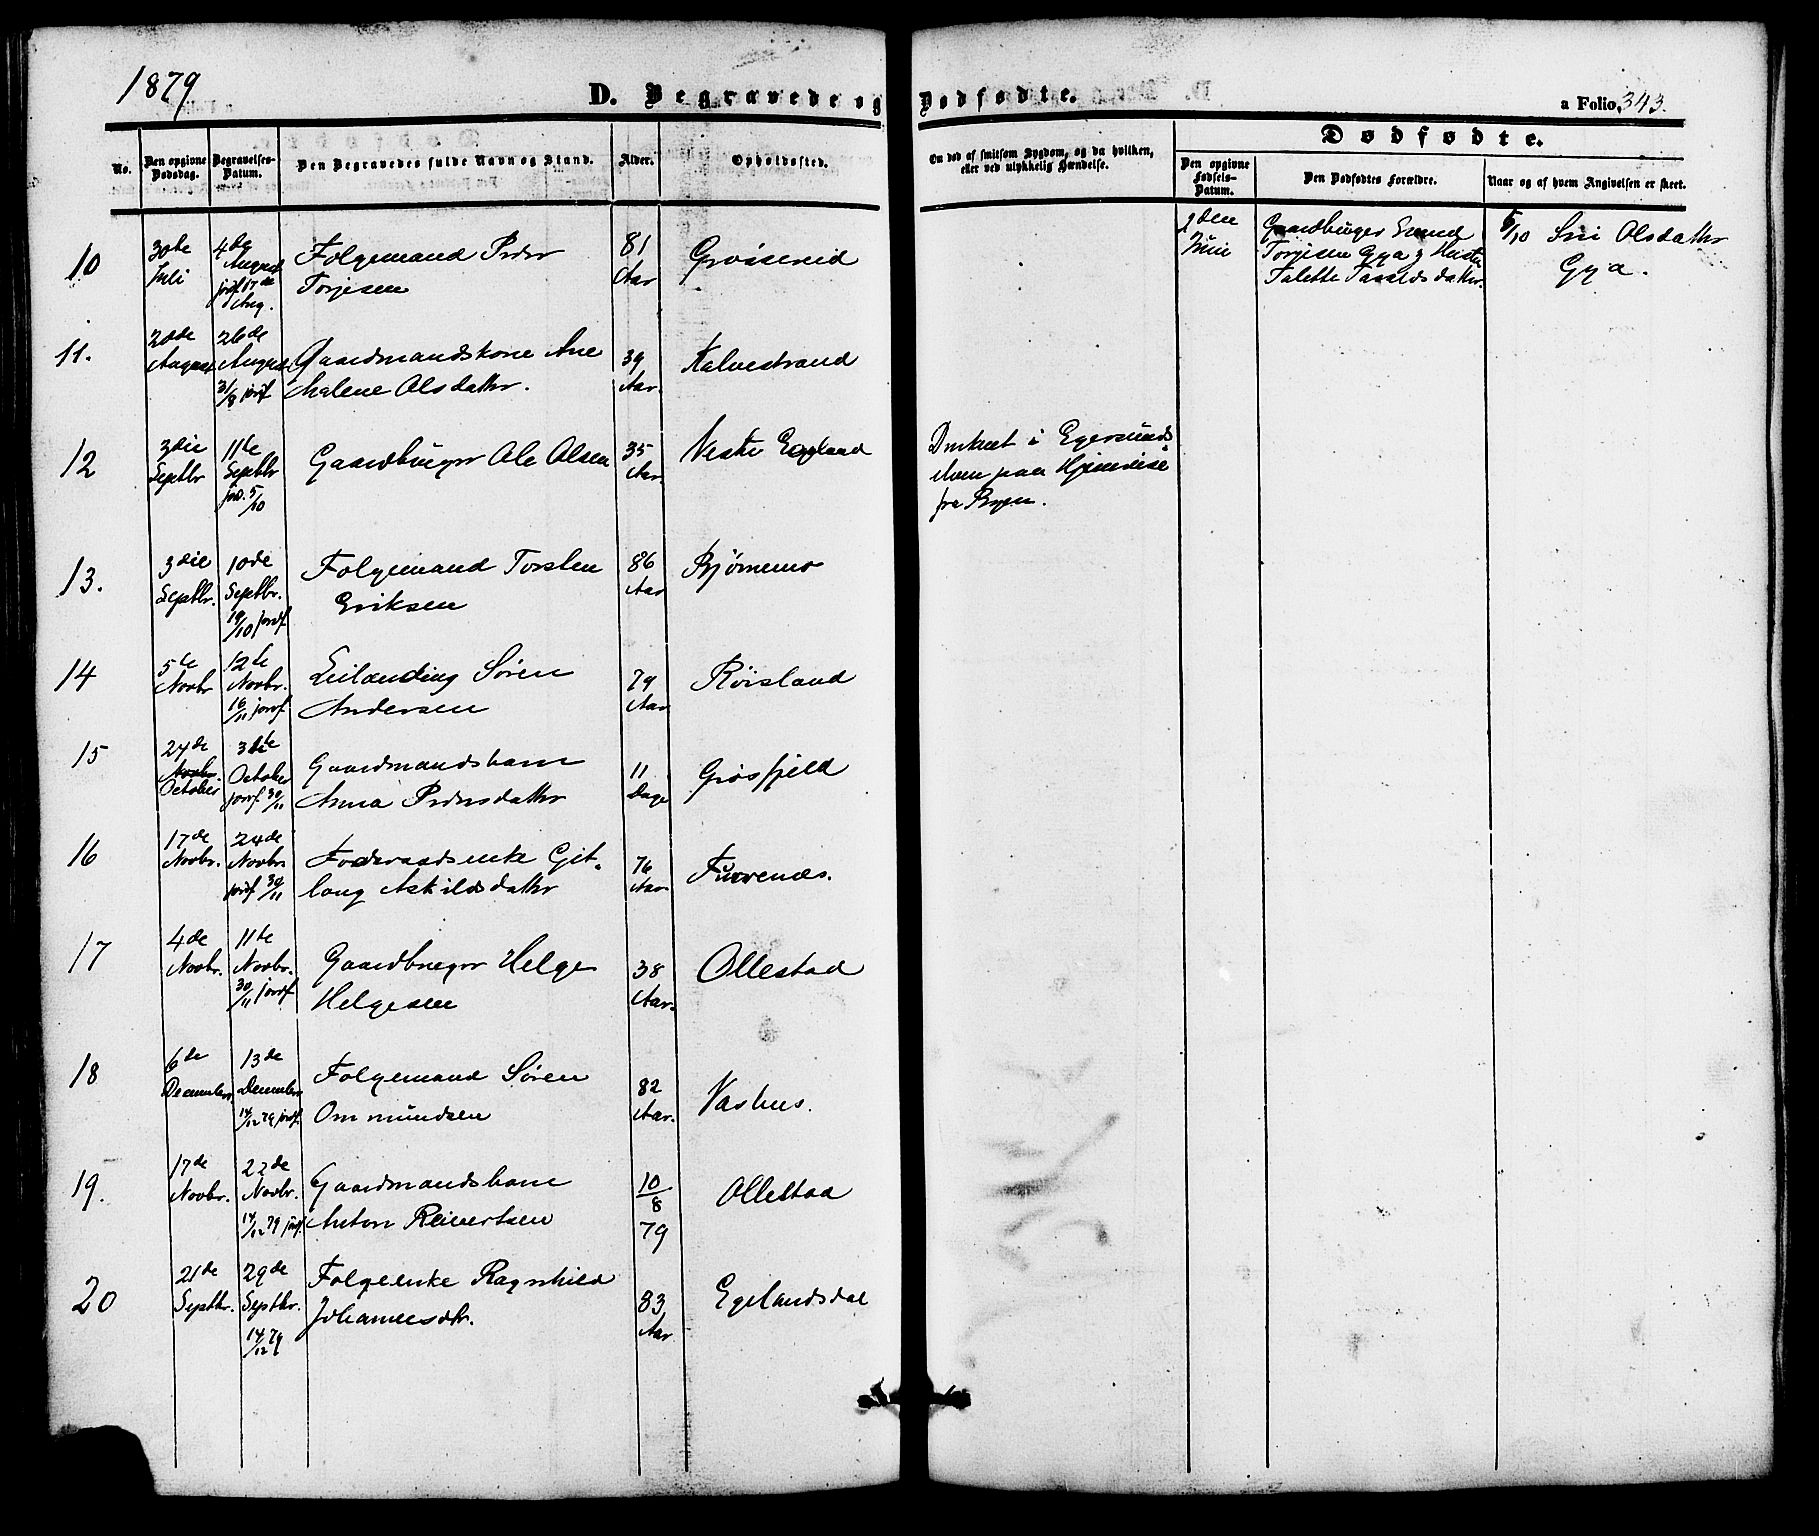 1879
D. Begravede og Dødfødte.
a Folio, 343.
Dødfødte.
No.
Den opgivne Dødsdag.
Begravelses-Datum.
Den Begravedes fulde Navn og Stand.
Alder.
Opholdssted.
Om død af smitsom Sygdom, og da hvilken,
eller ved ulykkelig Hændelse.
Den opgivne Fødsels-Datum.
Den Dødfødtes Forældre.
Naar og af hvem Angivelsen er skeet.
10
30te Juli
4de August jordf. 17de Aug.
Folgemand Peder
Torjesen
81 Aar
Grøsereid
2den Juni
Gaardbruger Emund
Torjesen Gya og Hustru
Talette Taraldsdatter
5/10 Siri Olsdatter
Gya.
11.
20de August
26de August 31/8 jordf
Gaardmandskone Ane
Malene Olsdatter.
39 Aar.
Kalvestrand
12
3die Septbr
11te Septbr jord. 5/10
Gaardbruger Ole Olsen
35 Aar.
Nestre Egeland
Druknet i Egersunds
elven paa Hjemreise
fra Byen.
13.
3die Septbr.
10de Septbr. 19/10 jordf
Folgemand Torsten
Eriksen
86 Aar
Bjørnemo
14
5te Novbr
12te Novbr. 16/11 jordf
Leilænding Søren
Andersen
79 Aar
Røisland
15
24de Novbr. October
31te October jordf 30/11
Gaardmandsbarn
Anna Pedersdatter
11 Dage
Grøsfjeld
16
17de Novbr.
24de Novbr jordf 30/11
Foderaadsenke Git-
laug Askildsdatter
76 Aar
Furenæs.
17
4de Novbr.
11te Novbr. 30/11 jordf
Gaardbruger Helge
Helgesen
38 Aar.
Ollestad
18
6te December
13de December 14/12 79 jordf.
Folgemand Søren
Ommundsen
82 Aar.
Vashus.
19.
17de Novbr.
22de Novbr. 14/12 79 jordf.
Gaardmandsbarn
Anton Reiertsen
10/8 79
Ollestad
20
21de Septbr.
29de Septbr. 14/12 79
Folgeenke Ragnhild
Johannesdtr.
83 Aar
Egelandsdal